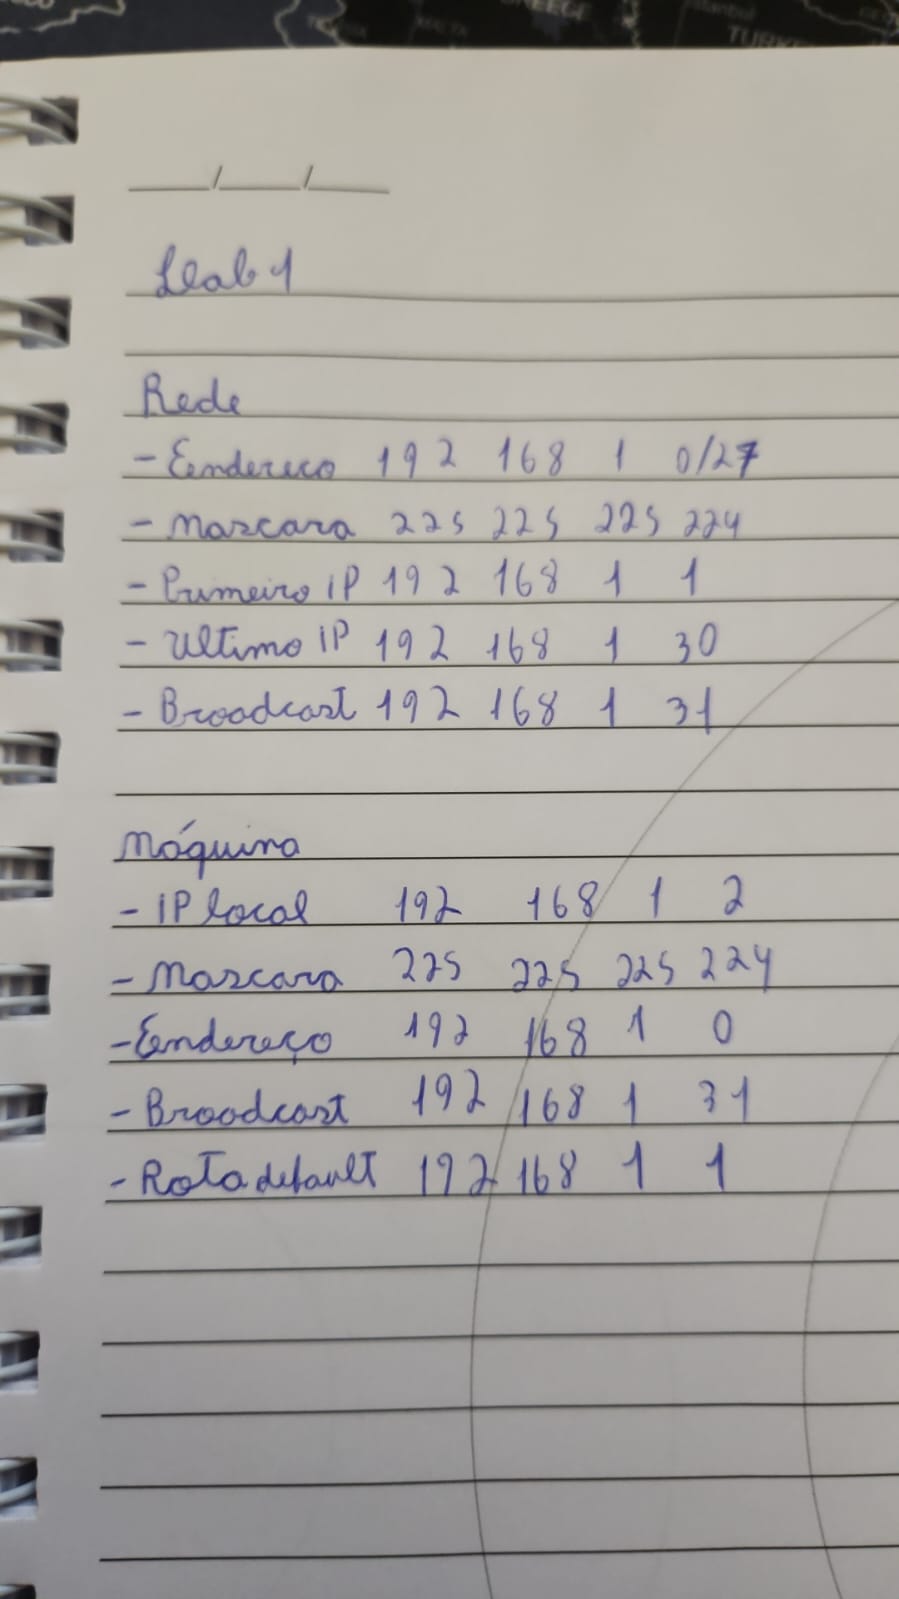 GREECE
Istanbul
TURKEY
Llab 1
Rede
- Eendereco 192 168 1 0/27
- Mascara 225 225 225 224
- Primeiro IP 192 168 1 1
- Ultimo IP 192 168 1 30
- Broadcast 192 168 1 31
Máquina
- IP local 192 168 1 2
- Mascara 225 225 225 224
- Eendereço 192 168 1 0
- Broadcast 192 168 1 31
- Rota default 192 168 1 1